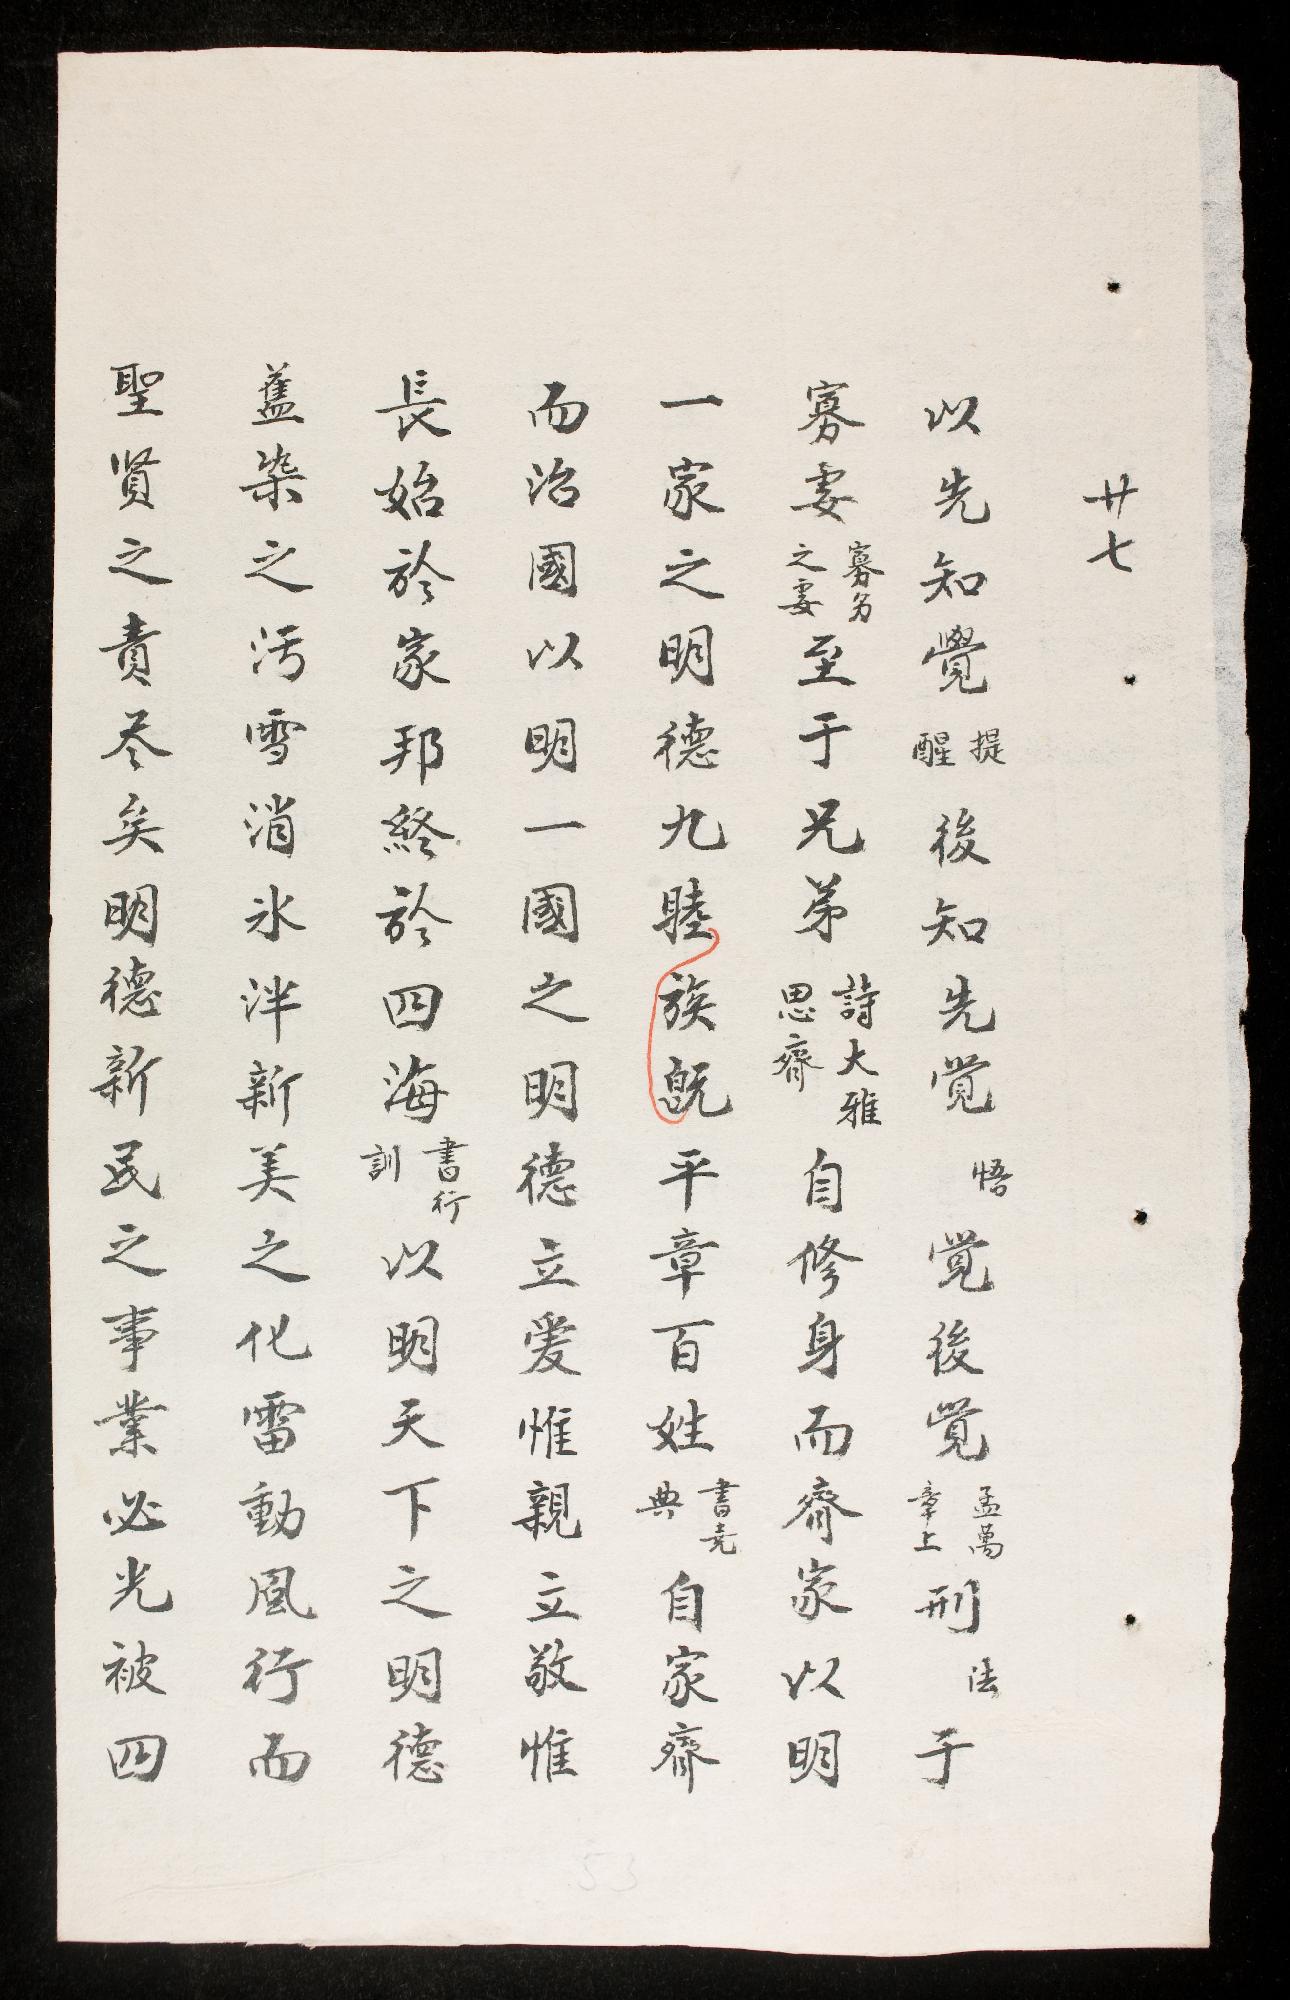 廿七
以先知覺提醒後知先覚悟覚後覚孟萬章上刑法于
寡妻寡多之妻至于兄弟詩大雅思齊自修身而齊家以明
一家之明德九睦族既平章百姓書堯典自家齊
而治國以明一國之明德立爱惟親立敬惟
長始於家邦終於四海書行訓以明天下之明德
舊染之污雪消氷泮新美之化雷動風行而
聖賢之責尽矣明德新民之事業必光被四
53